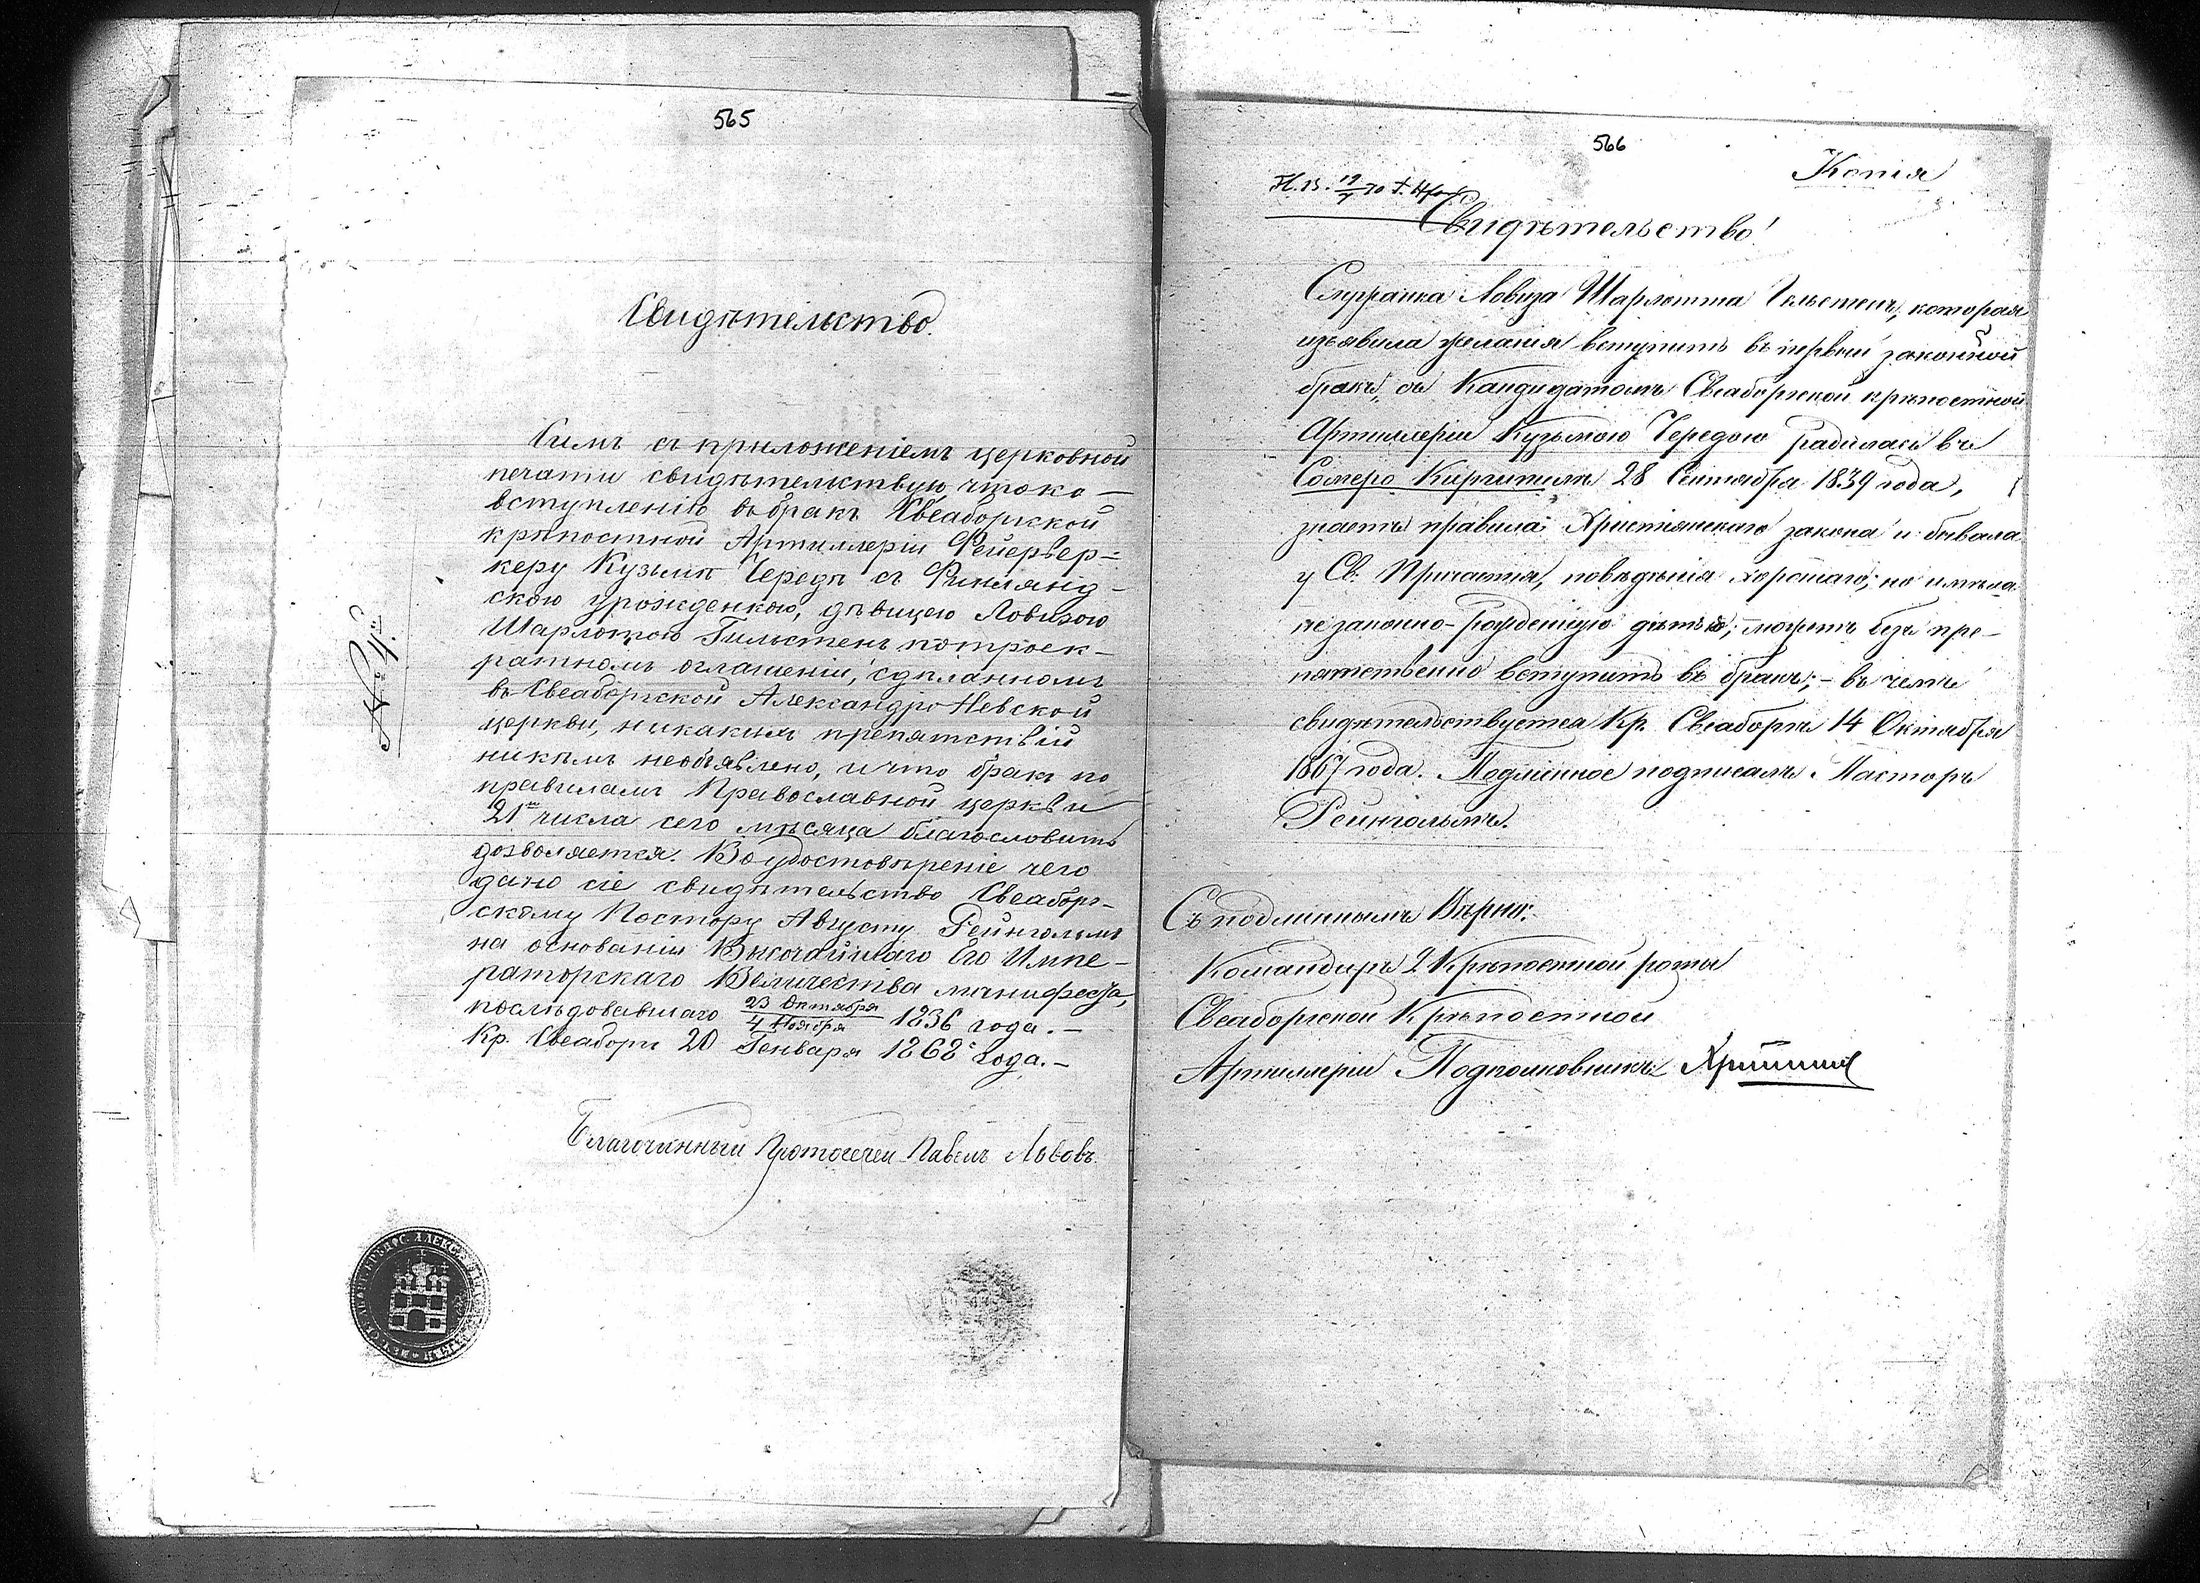 565
Свидѣтельство.
Симъ съ приложеніемъ церковной
печати свидѣтельствую что ко
вступленію въ бракъ Свеаборгской
крѣпостной Артиллеріи Фейервер-
керу Кузьмѣ Чередѣ съ Финлянд-
скою урожденкою, дѣвицею Ловизою
Шарлотою Гильстенъ по троек-
ратномъ оглашеніи, сдѣланномъ
въ Свеаборгской Александро Невской
церкви, никакихъ препятствій
никѣмъ необъявлено, и что бракъ по
правиламъ Православной церкви
21 числа сего мѣсяца благословить
дозволяется. Въ удостовѣреніе чего
дано сіе свидѣтельство Свеаборг-
скому Пастору Августу Рейнгольмъ
на основаніи Высочайшаго Его Импе-
раторскаго Величества манифеста,
послѣдовавшаго 23 Октября / 4 Ноября 1836 года. —
Кр. Свеаборгъ 20 Генваря 1868 года. —
№ 4.
Благочинный Протоіерей Павелъ Львовъ.
566
Копія
Свидѣтельство
Служанка Ловиза Шарлотта Гильстенъ, которая
изъявила желанія вступить въ первый законной
бракъ, съ Кандидатомъ Свеаборгской крѣпостной
Артиллеріи Кузьмою Чередою радилась въ
Сомеро 28 Сентября 1839 года,
знаетъ правила Христіянскаго закона и бывала
у Св. Причастія, поведенія хорошаго, но имѣла
незаконно-рожденную дѣтей; можетъ безъ пре-
пятственно вступить въ бракъ; — въ чемъ
свидѣтельствуется Кр. Свеаборгъ 14 Октября
1867 года. Подлинное подписалъ Пасторъ
Рейнгольмъ.
Съ подлиннымъ Вѣрно:
Командиръ 2 Крѣпостной роты
Свеаборгской Крѣпостной
Артиллеріи Подполковникъ